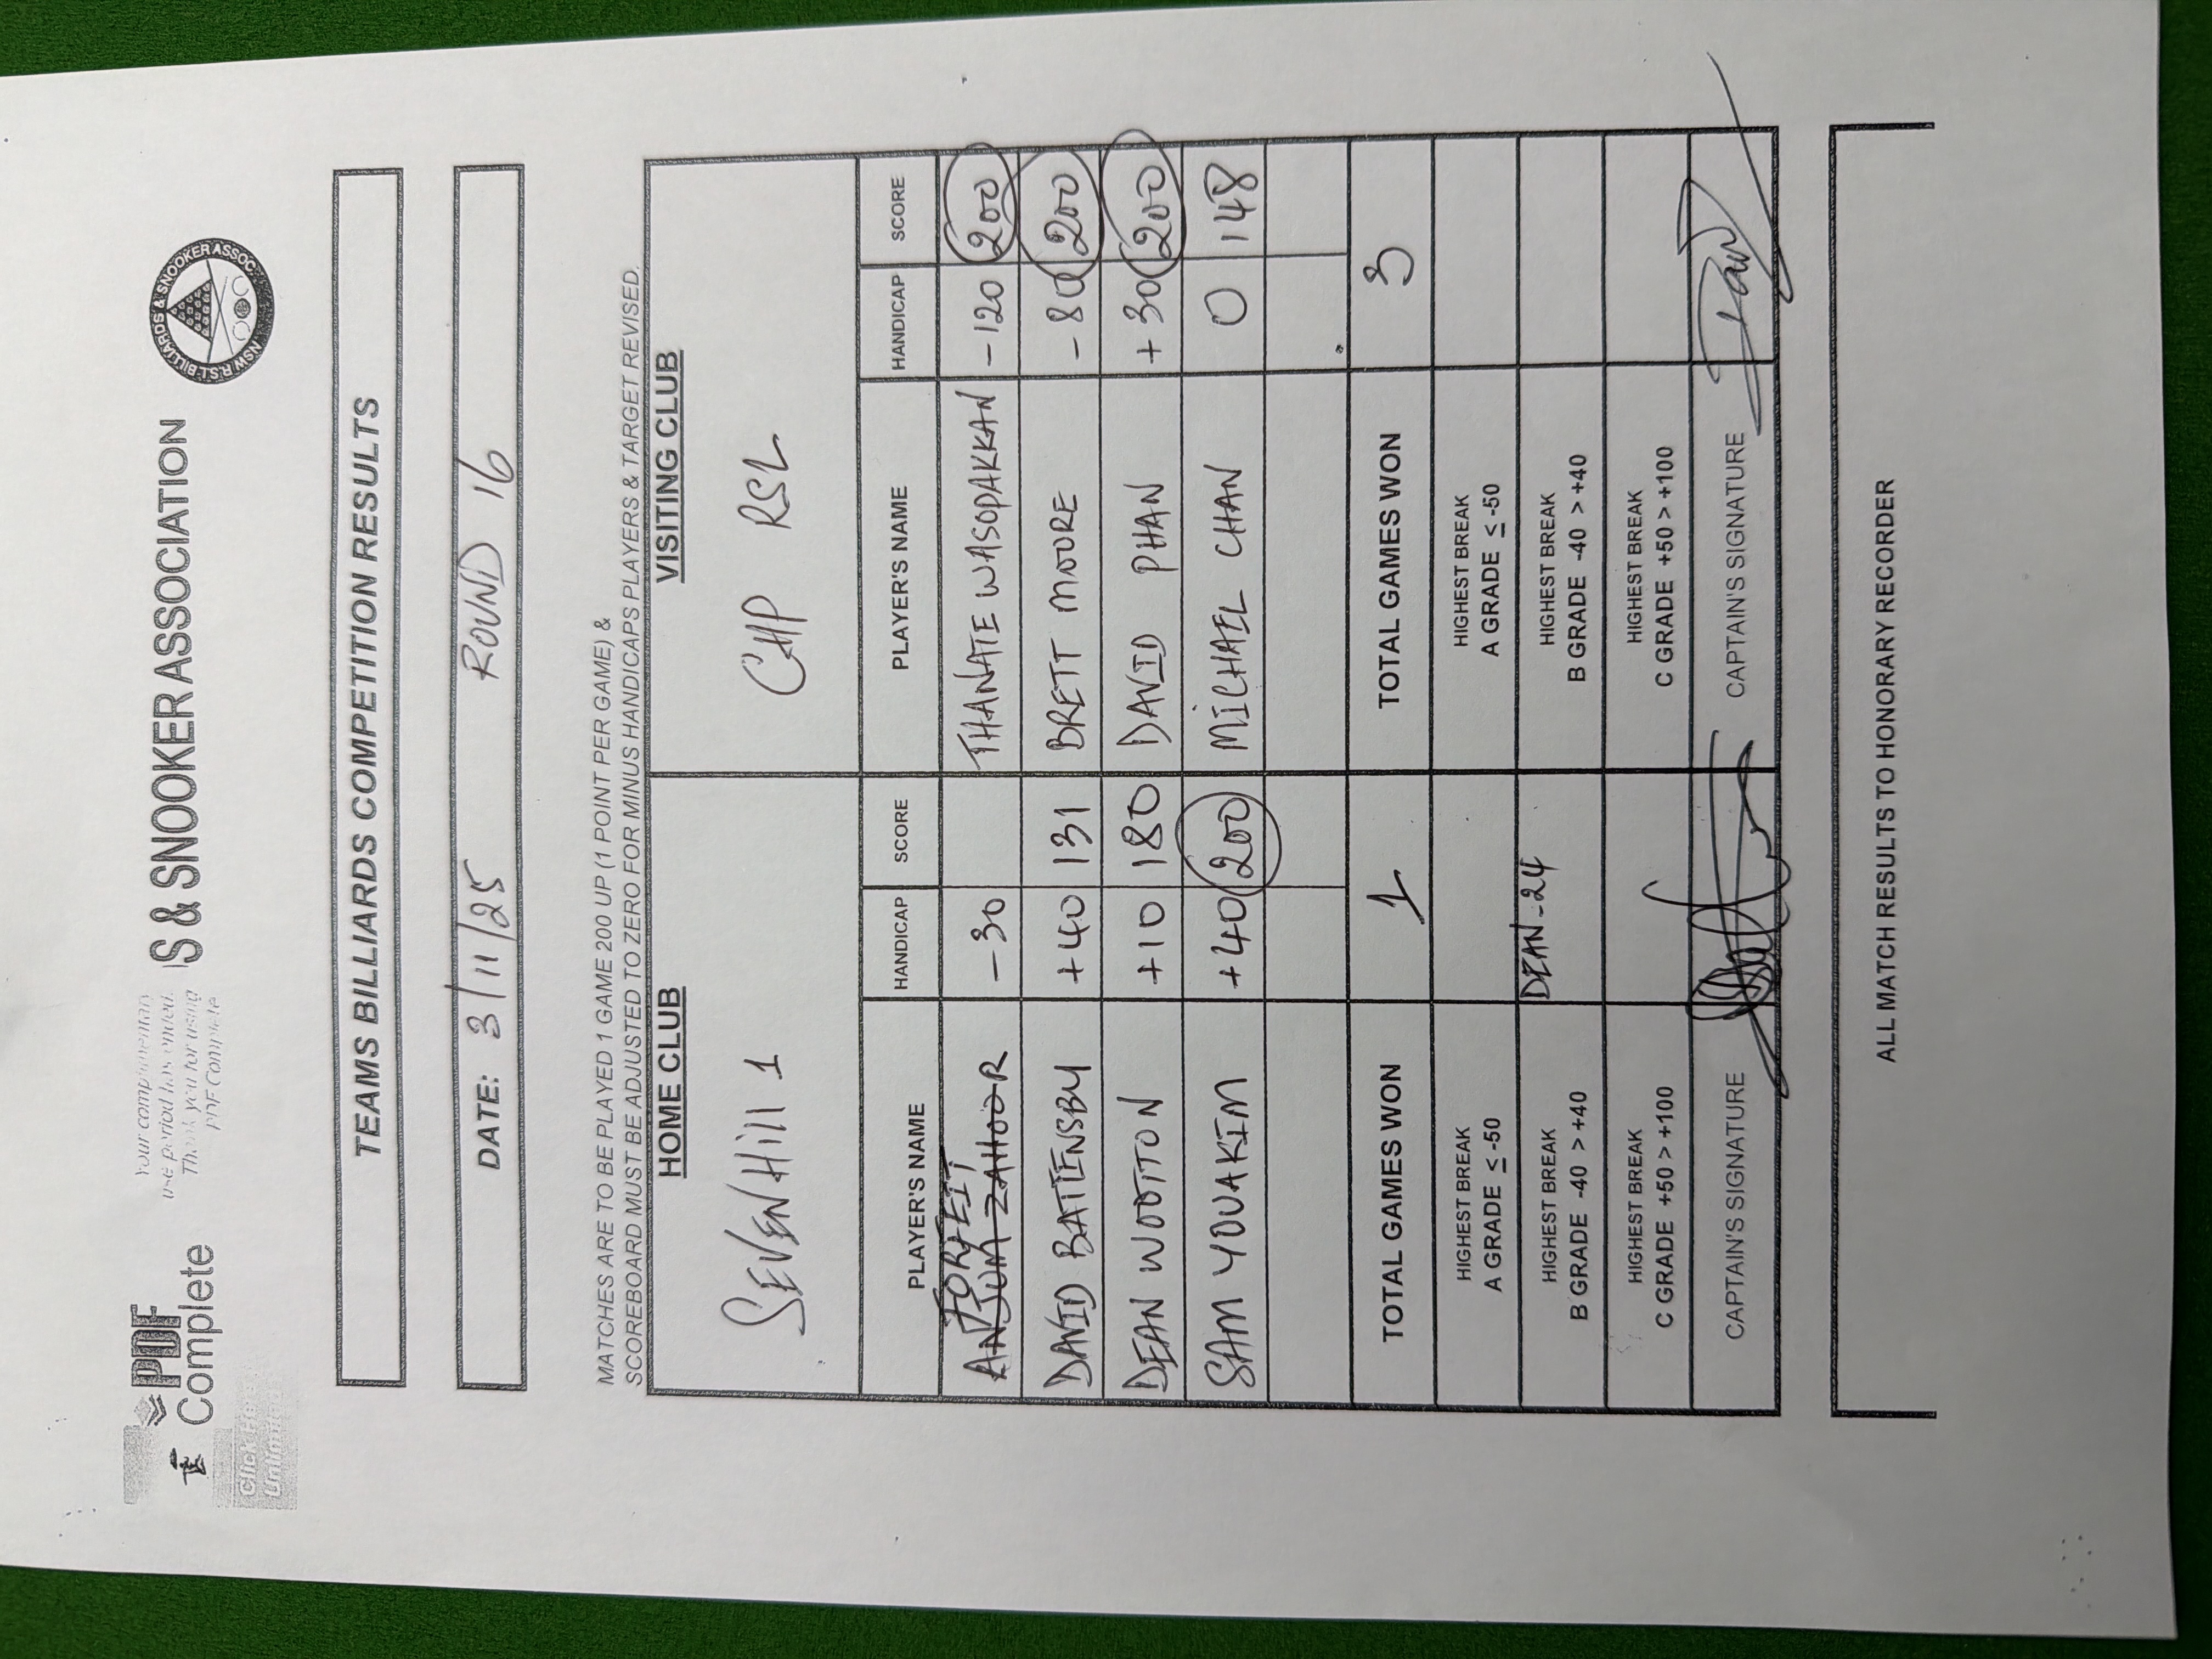 PDF
Complete
Your complimentary
use period has ended.
Thank you for using
PDF Complete
S & SNOOKER ASSOCIATION
NSW R.S.L BILLIARDS & SNOOKER ASSOC
TEAMS BILLIARDS COMPETITION RESULTS
DATE: 3/11/25 ROUND 16
MATCHES ARE TO BE PLAYED 1 GAME 200 UP (1 POINT PER GAME) &
SCOREBOARD MUST BE ADJUSTED TO ZERO FOR MINUS HANDICAPS PLAYERS & TARGET REVISED.
HOME CLUB VISITING CLUB
SEVEN Hill 1 CHP RSL
PLAYER'S NAME HANDICAP SCORE PLAYER'S NAME HANDICAP SCORE
FORFEIT
ANJUM ZAHOOR -30 THANATE WASOPAKKAN -120 200
DAVID BATTENSBY +40 131 BRETT MOORE -80 200
DEAN WOOTTON +10 180 DAVID PHAN +30 200
SAM YOUAKIM +40 200 MICHAEL CHAN 0 148
TOTAL GAMES WON 1 TOTAL GAMES WON 3
HIGHEST BREAK HIGHEST BREAK
A GRADE ≤ -50 A GRADE ≤ -50
HIGHEST BREAK DEAN-24 HIGHEST BREAK
B GRADE -40 > +40 B GRADE -40 > +40
HIGHEST BREAK HIGHEST BREAK
C GRADE +50 > +100 C GRADE +50 > +100
CAPTAIN'S SIGNATURE CAPTAIN'S SIGNATURE
ALL MATCH RESULTS TO HONORARY RECORDER